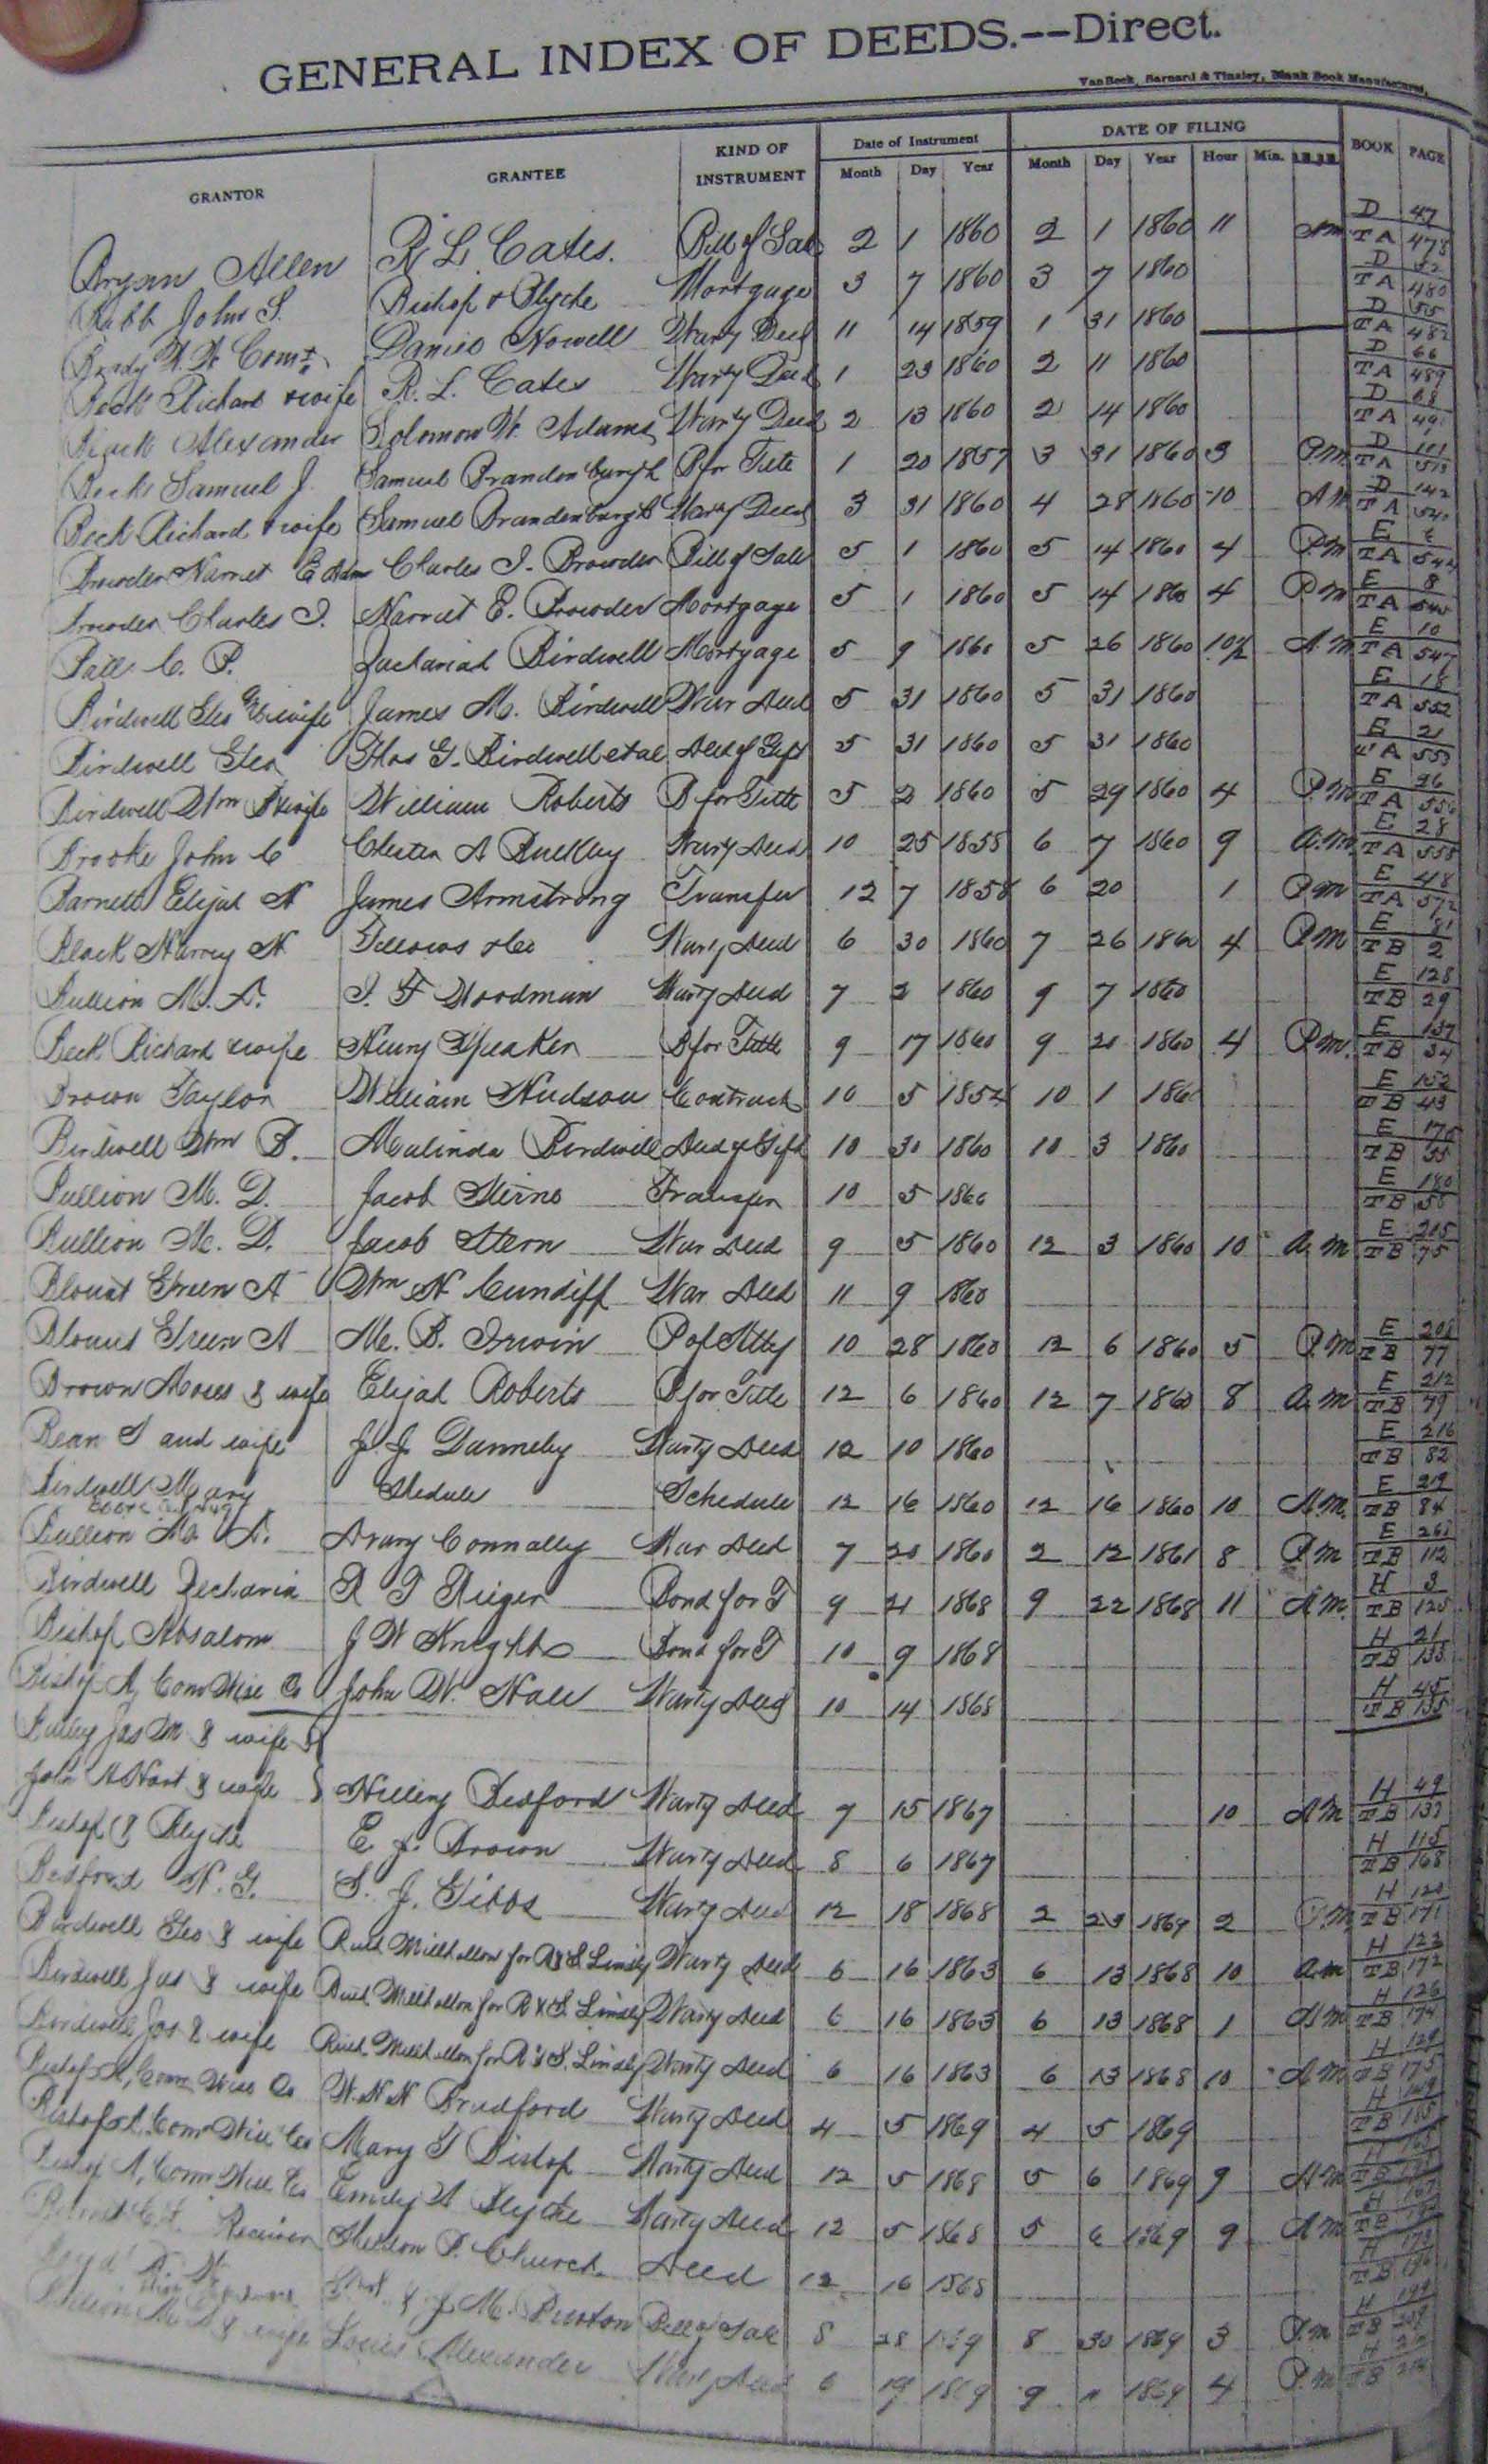 GENERAL INDEX OF DEEDS.--Direct.
VanBeek, Barnard & Tinsley, Blank Book Manufacturers,
GRANTOR GRANTEE KIND OF INSTRUMENT Date of Instrument DATE OF FILING BOOK PAGE
Month Day Year Month Day Year Hour Min.
Bryan Allen R L Cates. Bill of Sale 2 1 1860 2 1 1860 11 AM D 47 TA 478
Babb John S. Bishop & Blythe Mortgage 3 7 1860 3 7 1860 D 52 TA 480
Brady W. W Comr. Daniel Nowell Warty Deed 11 14 1859 1 31 1860 D 55 TA 482
Beck Richard & wife R. L. Cates Warty Deed 1 23 1860 2 11 1860 D 66 TA 489
Black Alexander Solomon W. Adams Warty Deed 2 13 1860 2 14 1860 D 68 TA
Beck Samuel J. Samuel Brandenburgh B for Title 1 20 1857 3 31 1860 3 P.M. D 101 TA 513
Beck Richard & wife Samuel Brandenburgh Warty Deed 3 31 1860 4 28 1860 10 AM D 142 TA 540
Browder Harriet E Charles I. Browder Bill of Sale 5 1 1860 5 14 1860 4 P.M E TA
Browder Charles I. Harriet E. Browder Mortgage 5 1 1860 5 14 1860 4 P.M E 8 TA 545
Ball C. P. Zachariah Birdwell Mortgage 5 9 1860 5 26 1860 10½ A.M E 10 TA 547
Birdwell Geo & wife James M. Birdwell War Deed 5 31 1860 5 31 1860 E 18 TA 552
Birdwell Geo Thos G. Birdwell et al Deed of Gift 5 31 1860 5 31 1860 E 21 TA 553
Birdwell Wm B & wife William Roberts B for Title 5 2 1860 5 29 1860 4 P.M E 26 TA 556
Brooke John C Chester A Buckley Warty Deed 10 25 1858 6 7 1860 9 A.M. E 28 TA 558
Barnett Elijah H James Armstrong Transfer 12 7 1858 6 20 1 P.M E 48 TA 572
Black Harvey H Fellows & Co Warty Deed 6 30 1860 7 26 1860 4 P.M E 81 TB 2
Bullion M. D. I. F Woodman Warty Deed 7 2 1860 9 7 1860 E 128 TB 29
Beck Richard & wife Henry Speaker B for Title 9 17 1860 9 20 1860 4 P.M. E 137 TB 34
Brown Taylor William Hudson Contract 10 5 1852 10 1 1860 E 152 TB 43
Birdwell Wm B. Malinda Birdwell Deed of Gift 10 30 1860 10 3 1860 E 175 TB 55
Bullion M. D. Jacob Sterne Transfer 10 5 1860 E 180 TB 58
Bullion M. D. Jacob Stern War Deed 9 5 1860 12 3 1860 10 A.M E 205 TB 75
Blount Green A Wm H Cundiff War Deed 11 9 1860
Blount Green A M. B. Irwin P of Atty 10 28 1860 12 6 1860 5 P.M E 208 TB 77
Brown Moses & wife Elijah Roberts B for Title 12 6 1860 12 7 1860 8 A.M E 212 TB 79
Bean S and wife J. J. Dannely Warty Deed 12 10 1860 E 216 TB 82
Birdwell Mary Shedule Schedule 12 16 1860 12 16 1860 10 A.M. E 219 TB 84
Bullion M. D. Drury Connally War Deed 7 20 1860 2 12 1861 8 P.M E 261 TB 112
Birdwell Zecharia R T Rieger Bond for T 9 21 1868 9 22 1868 11 A.M. H 3 TB 125
Bishop Absalom J W Knight Bond for T 10 9 1868 H 21 TB 133
Bishop A, Com Wise Co John W. Hale Warty Deed 10 14 1868 H 45 TB 135
Bailey Jas M & wife
John H Hart & wife Hilery Bedford Warty Deed 7 15 1867 10 A.M H 49 TB 137
Bishop & Blythe E J. Brown Warty Deed 8 6 1867 H 115 TB 168
Bedford H. G. S. J. Gibbs Warty Deed 12 18 1868 2 23 1869 2 P.M H 120 TB 171
Birdwell Geo & wife Ruth Millhollon for R & S Linsley Warty Deed 6 16 1863 6 13 1868 10 A.M H 122 TB 172
Birdwell Jas & wife Ruth Millhollon for R & S. Linsley Warty Deed 6 16 1863 6 13 1868 1 A.M H 126 TB 174
Birdwell Jas & wife Ruth Millhollon for R & S. Linsley Warty Deed 6 16 1863 6 13 1868 10 A.M H 129 TB 175
Bishop A, Com Wise Co W. H. H Bradford Warty Deed 4 5 1869 4 5 1869 H TB
Bishop A. Com Wise Co Mary T Bishop Warty Deed 12 5 1868 5 6 1869 9 A.M H 165 TB
Bishop A, Com Wise Co Emily A Blythe Warty Deed 12 5 1868 5 6 1869 9 A.M H 167 TB
Receiver Sheldon P. Church Deed 12 16 1868 H TB
Boyd & J. M. Burton Bill of Sale 8 28 1869 8 30 1869 3 P.M H TB
Bullion M. D & wife Louis Alexander Warty Deed 6 19 1869 9 1869 4 P.M H TB